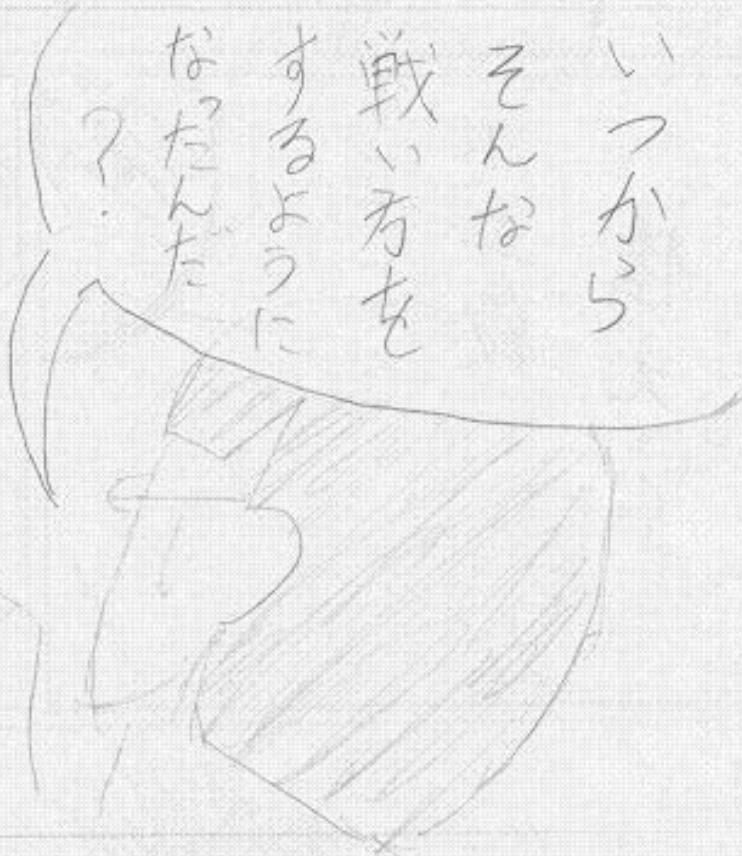 いつから
そんな
戦い方を
するように
なったんだ
?